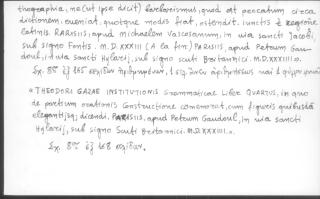 thographia, ne(ut ipse dicit) barbarismus, quod ad peccatum circa
dictionem, eveniat, quotque modis fiat, ostendit. iunctis è regione
latinis. PARISIIS, apud Michaelem Vascosanum, in via sancti Jacobi,
sub signo Fontis. M.D.XXXIII (A la fin) PARISIIS, apud Petrum Gau-
doul, in via sancti Hylarij, sub signo Scuti Britannici. M.D.XXXIIII.».
«THEODORI GAZAE INSTITUTIONIS Grammaticae Liber QUARTUS, in quo
de partium orationis constructione commemorat, cum figuris quibusdā
elegantijsq; dicendi. PARISIIS, apud Petrum Gaudoul, in via sancti
Hylarij, sub signo Scuti Britannici. M.D.XXXIIII.».